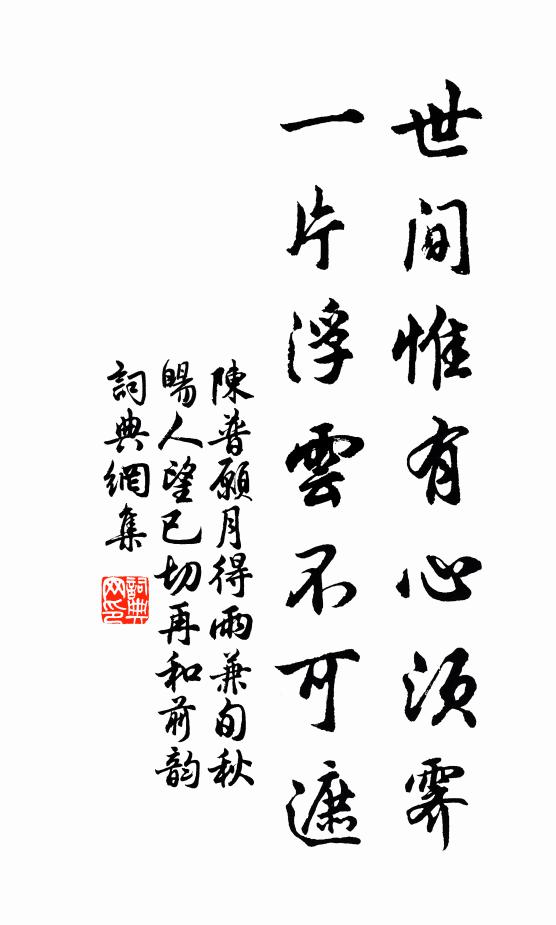 世間惟有心須霽
一片浮雲不可遮
陳普願月得雨兼旬秋
暘人望已切再和前韵
詞典網集
詞典网印